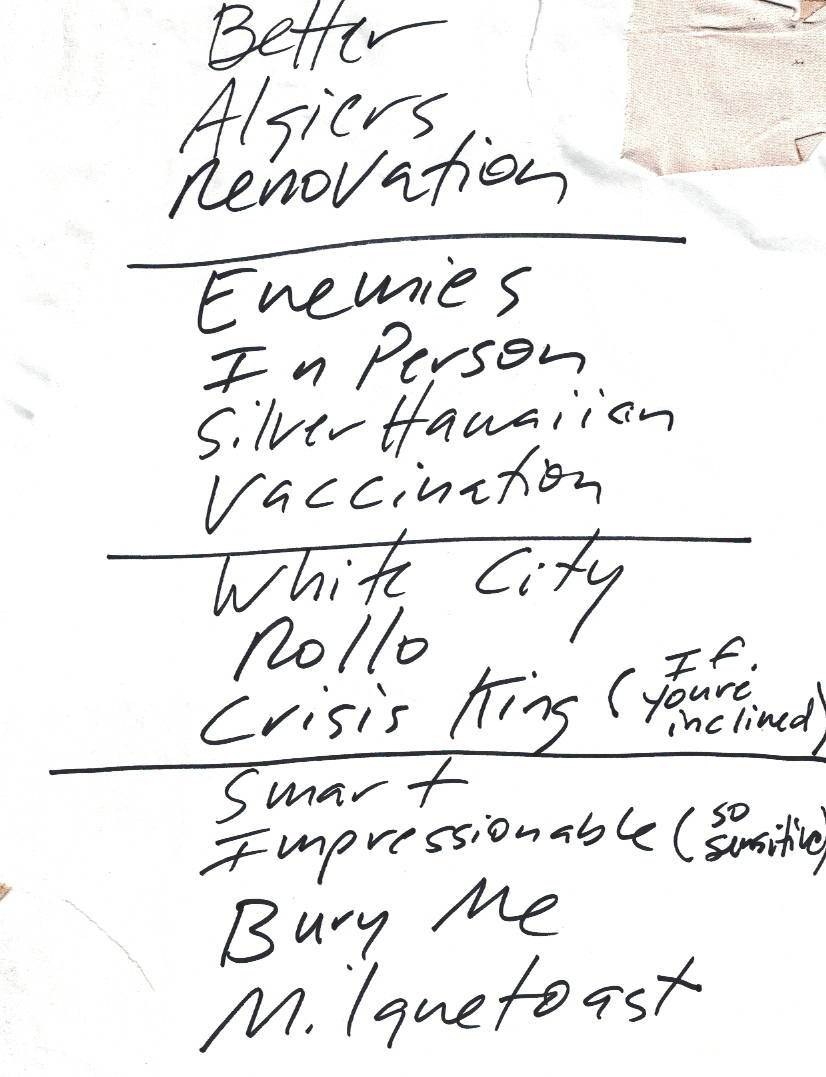 Better
Algiers
Renovation
Enemies
In Person
Silver Hawaiian
Vaccination
White City
Rollo
Crisis King (If you're inclined)
Smart
Impressionable (so sensitive)
Bury Me
Milquetoast